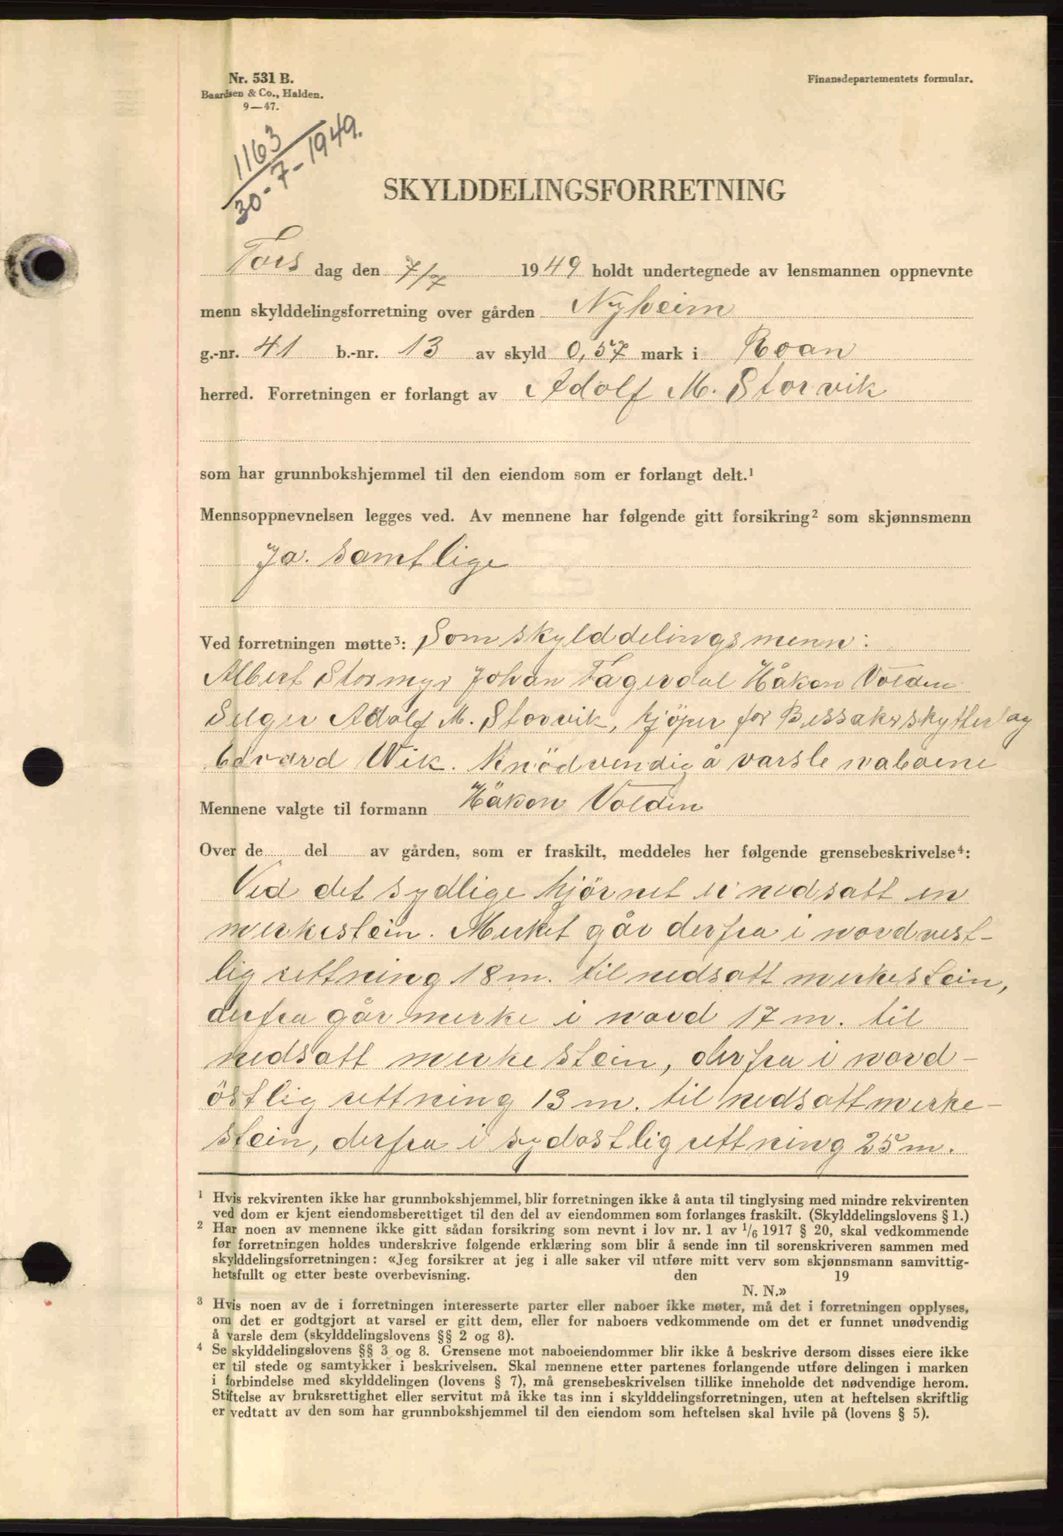 Nr. 531 B.
Baardsen & Co., Halden.
9—47.
Finansdepartementets formular.
1163
30-7-1949.
SKYLDDELINGSFORRETNING
Tors dag den 7/7 1949 holdt undertegnede av lensmannen oppnevnte
menn skylddelingsforretning over gården Nyheim
g.-nr. 41 b.-nr. 13 av skyld 0,57 mark i Roan
herred. Forretningen er forlangt av Adolf M. Storvik
som har grunnbokshjemmel til den eiendom som er forlangt delt.¹
Mennsoppnevnelsen legges ved. Av mennene har følgende gitt forsikring² som skjønnsmenn
Ja. samtlige
Ved forretningen møtte³: Som skylddelingsmenn:
Albert Stormyr Johan Fagerdal Håkon Volden
Selger Adolf M. Storvik, kjöper for Bessakerskytterlag
Edvard Wik. Unödvendig å varsle naboene
Mennene valgte til formann Håkon Volden
Over de del av gården, som er fraskilt, meddeles her følgende grensebeskrivelse⁴:
Ved det sydlige hjörnet er nedsatt en
merkestein. Merket går derfra i nordvest-
lig rettning 18 m. til nedsatt merkestein,
derfra går merke i nord 17 m. til
nedsatt merkestein, derfra i nord-
östlig rettning 13 m. til nedsatt merke-
stein, derfra i sydostlig rettning 25 m.
¹ Hvis rekvirenten ikke har grunnbokshjemmel, blir forretningen ikke å anta til tinglysing med mindre rekvirenten
ved dom er kjent eiendomsberettiget til den del av eiendommen som forlanges fraskilt. (Skylddelingslovens § 1.)
² Har noen av mennene ikke gitt sådan forsikring som nevnt i lov nr. 1 av ¹/₆ 1917 § 20, skal vedkommende
før forretningen holdes underskrive følgende erklæring som blir å sende inn til sorenskriveren sammen med
skylddelingsforretningen: «Jeg forsikrer at jeg i alle saker vil utføre mitt verv som skjønnsmann samvittig-
hetsfullt og etter beste overbevisning. den 19
N. N.»
³ Hvis noen av de i forretningen interesserte parter eller naboer ikke møter, må det i forretningen opplyses,
om det er godtgjort at varsel er gitt dem, eller for naboers vedkommende om det er funnet unødvendig
å varsle dem (skylddelingslovens §§ 2 og 8).
⁴ Se skylddelingslovens §§ 3 og 8. Grensene mot naboeiendommer blir ikke å beskrive dersom disses eiere ikke
er til stede og samtykker i beskrivelsen. Skal mennene etter partenes forlangende utføre delingen i marken
i forbindelse med skylddelingen (lovens § 7), må grensebeskrivelsen tillike inneholde det nødvendige herom.
Stiftelse av bruksrettighet eller servitut må ikke tas inn i skylddelingsforretningen, uten at heftelsen skriftlig
er vedtatt av den som har grunnbokshjemmel til den eiendom som heftelsen skal hvile på (lovens § 5).